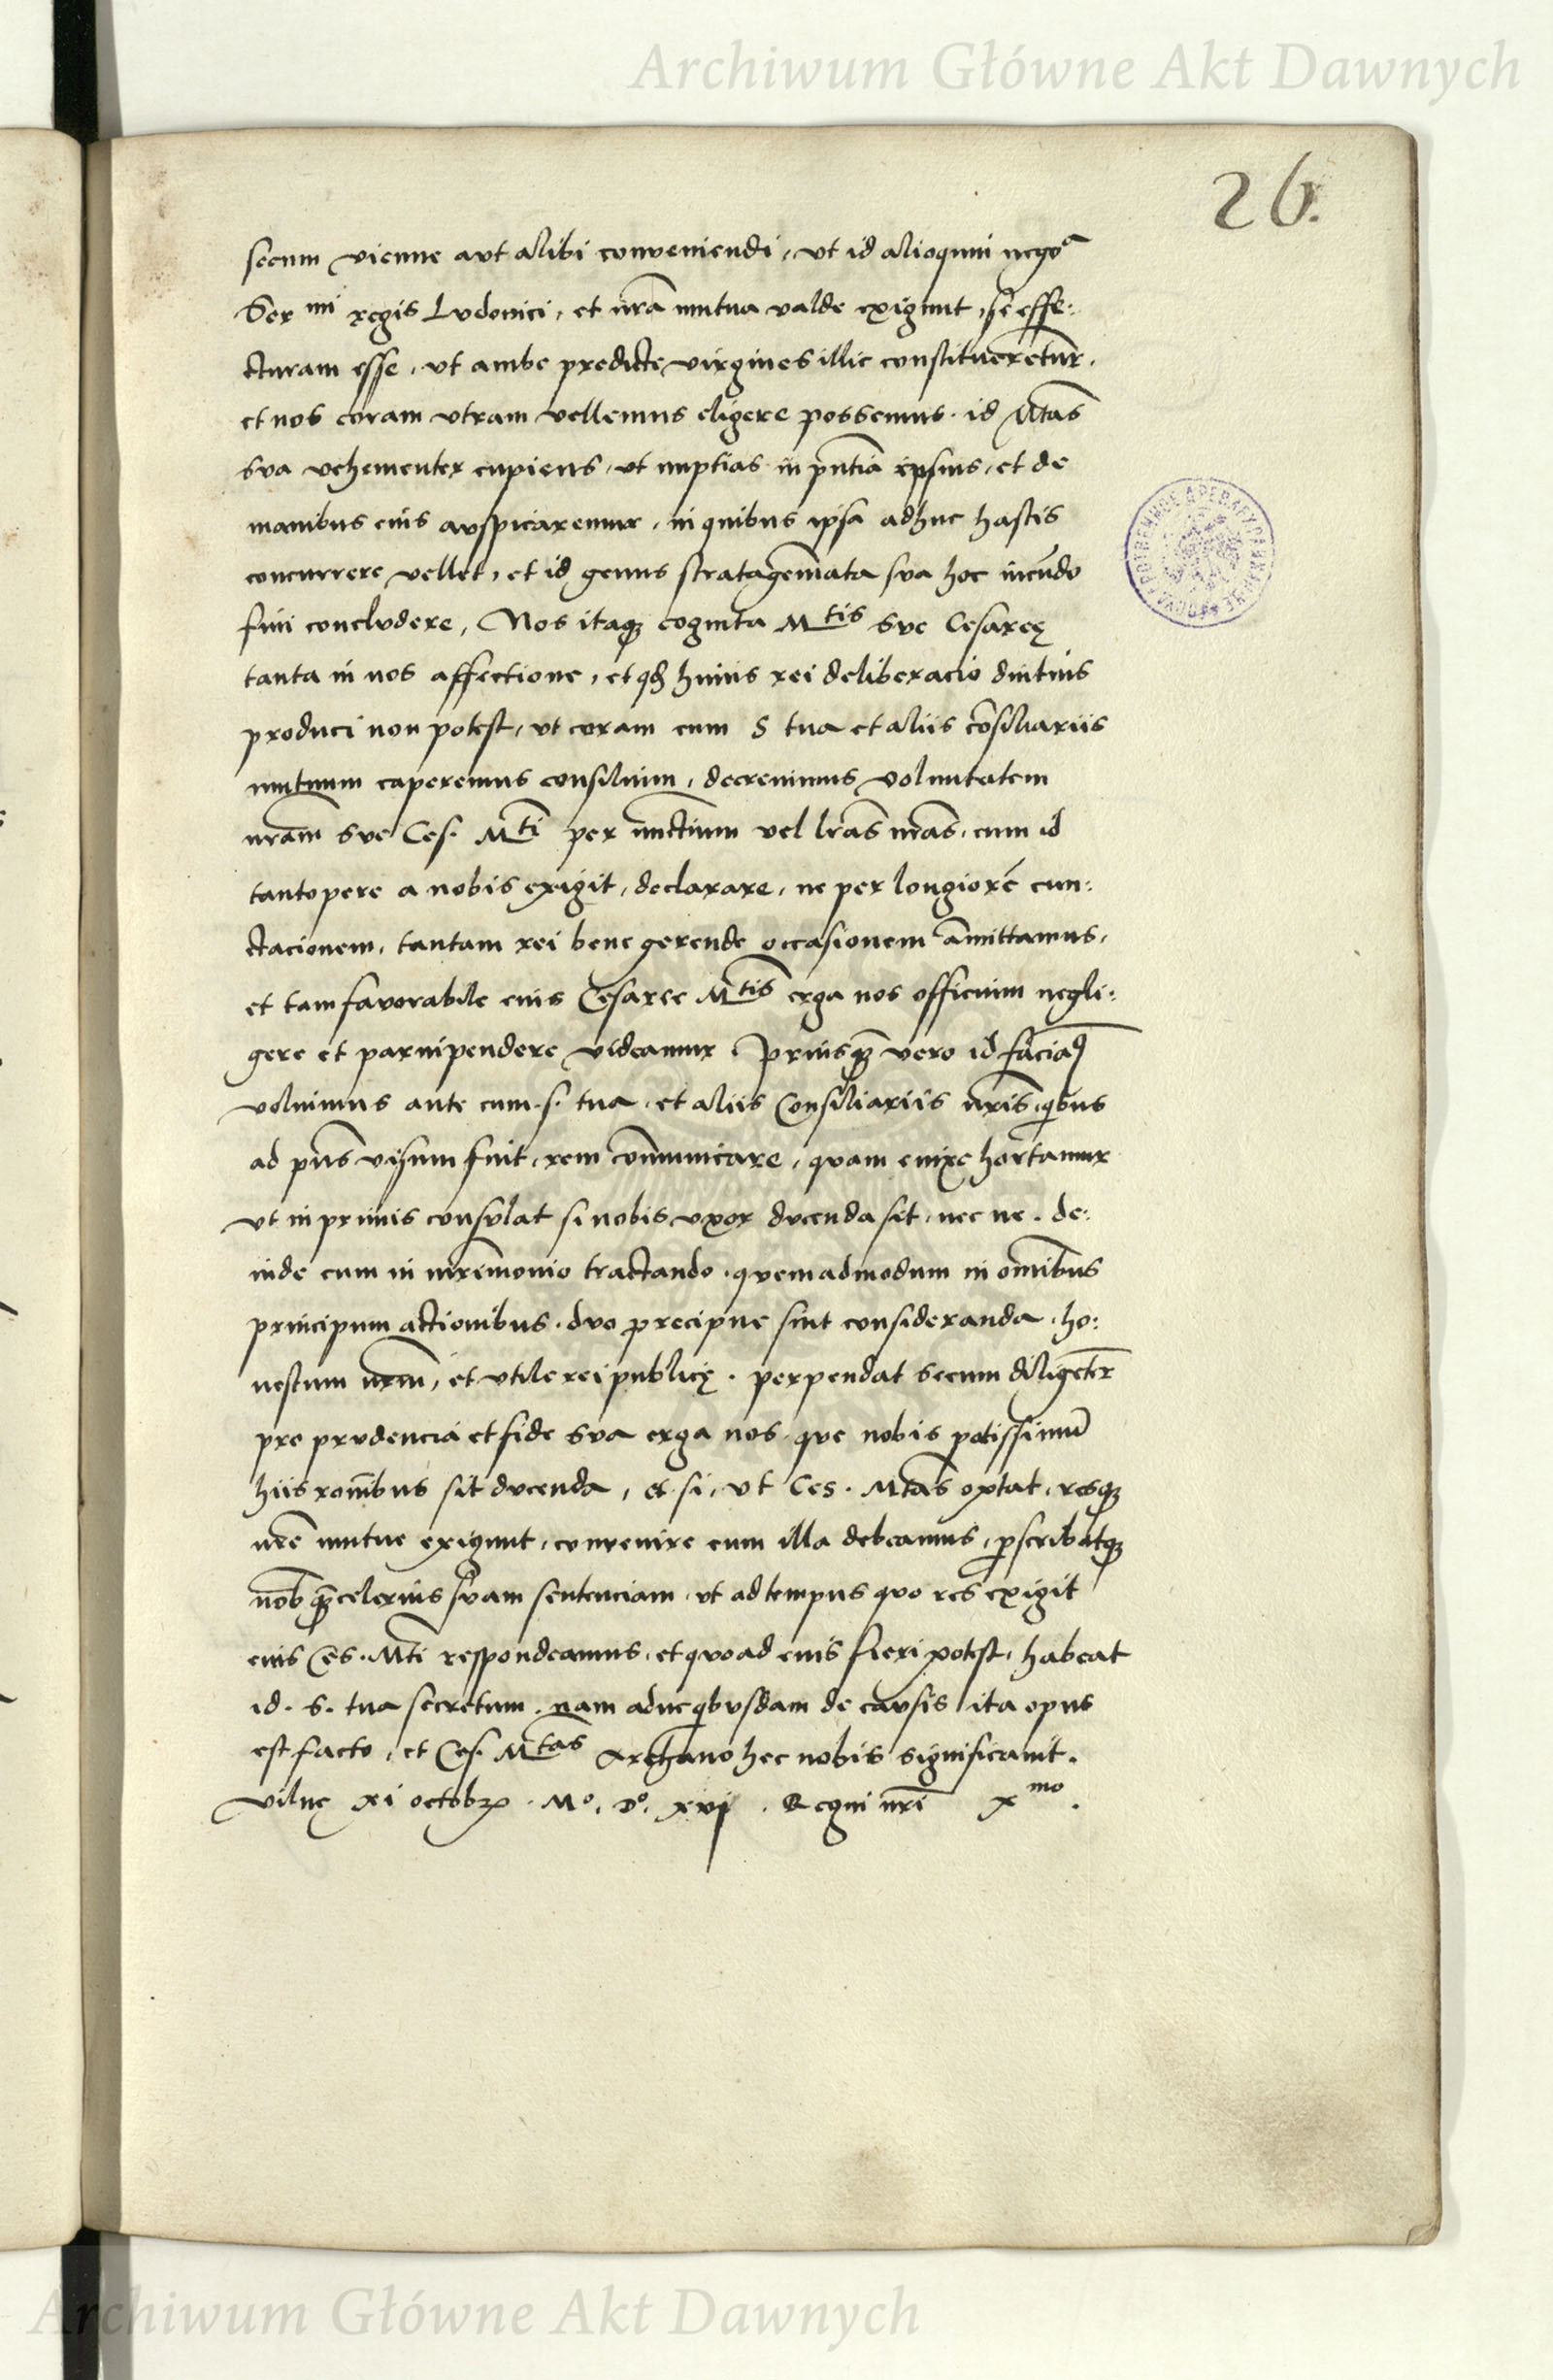 Archiwum Główne Akt Dawnych
26.
secum vienne aut alibi conveniendi, ut id alioquin negoᵃ
Serᵐⁱ regis Ludovici, et nr̄a mutua valde exigunt, se effe:
cturam esse, ut ambe predicte virgines illic constituerētur.
et nos coram utram vellemus eligere possemus. id Mt̄as
sua vehementer cupiens, ut nuptias in pn̄tia ipsius, et de
manibus eius auspicaremur, in quibus ipsa adhuc hastis
concurrere vellet, et id genus stratagem̄ata sua hoc iucūdo
fini concludere, Nos itaq̨ cognita Mᵗⁱˢ sue Cesareę
tanta in nos affectione, et qđ huius rei deliberacio diutius
produci non potest, ut coram cum S tua et aliis cōsiliariis
mutuum caperemus consilium, decrevimus voluntatem
nr̄am sue Ces. Mᵗⁱ per nunctium vel lr̄as nr̄as, cum id
tantopere a nobis exigit, declarare, ne per longiorē cun:
ctacionem, tantam rei bene gerende occasionem āmittamus,
et tam favorabile eius Cesaree Mᵗⁱˢ erga nos officium negli:
gere et parvipendere videamur. Priusq̄ vero id faciaꝰ
voluimus ante cum. s. tua. et aliis Consiliariis nr̄is, qibus
ad pn̄s visum fuit, rem cōmunicare, quam enixe hortamur
ut in primis consulat si nobis uxor ducenda sit, nec ne. de:
inde cum in mr̄imonio tractando. quemadmodum in om̄ibus
principum actionibus. duo precipue sint consideranda. ho:
nestum nr̄m, et utile reipublicę. perpendat secum diligēter
pro prudencia et fide sua erga nos. que nobis potissimū
hiis rōnibus sit ducenda, et si, ut Ces. Mt̄as optat, resq̨
nr̄e mutue exigunt, convenire cum illa debeamus, pscribatq̨
nob̄ q̄celerius suam sentenciam, ut ad tempus quo res exigit
eius Ces. Mt̄i respondeamus, et quoad eius fieri potest, habeat
id. S. tua secretum. nam aduc qibusdam de causis ita opus
est facto, et Ces. Mᵗᵃˢ Archano hec nobis significavit.
Vilnę xi octobꝝ. Mº. Dº. xvi. Regni nr̄i xᵐᵒ.
Archiwum Główne Akt Dawnych